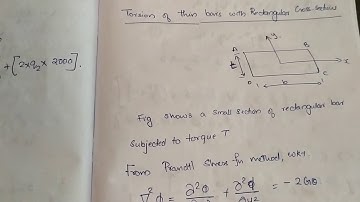 Torsion of thin bars with Rectangular Cross section
+ [2×q₂× 2000].
y
A
B
t
x
D
C
b
Fig shows a small section of rectangular bar
subjected to torque T
From Prandtl stress fn method, WKT
∇²φ = ∂²φ + ∂²φ = -2Gθ
∂y²